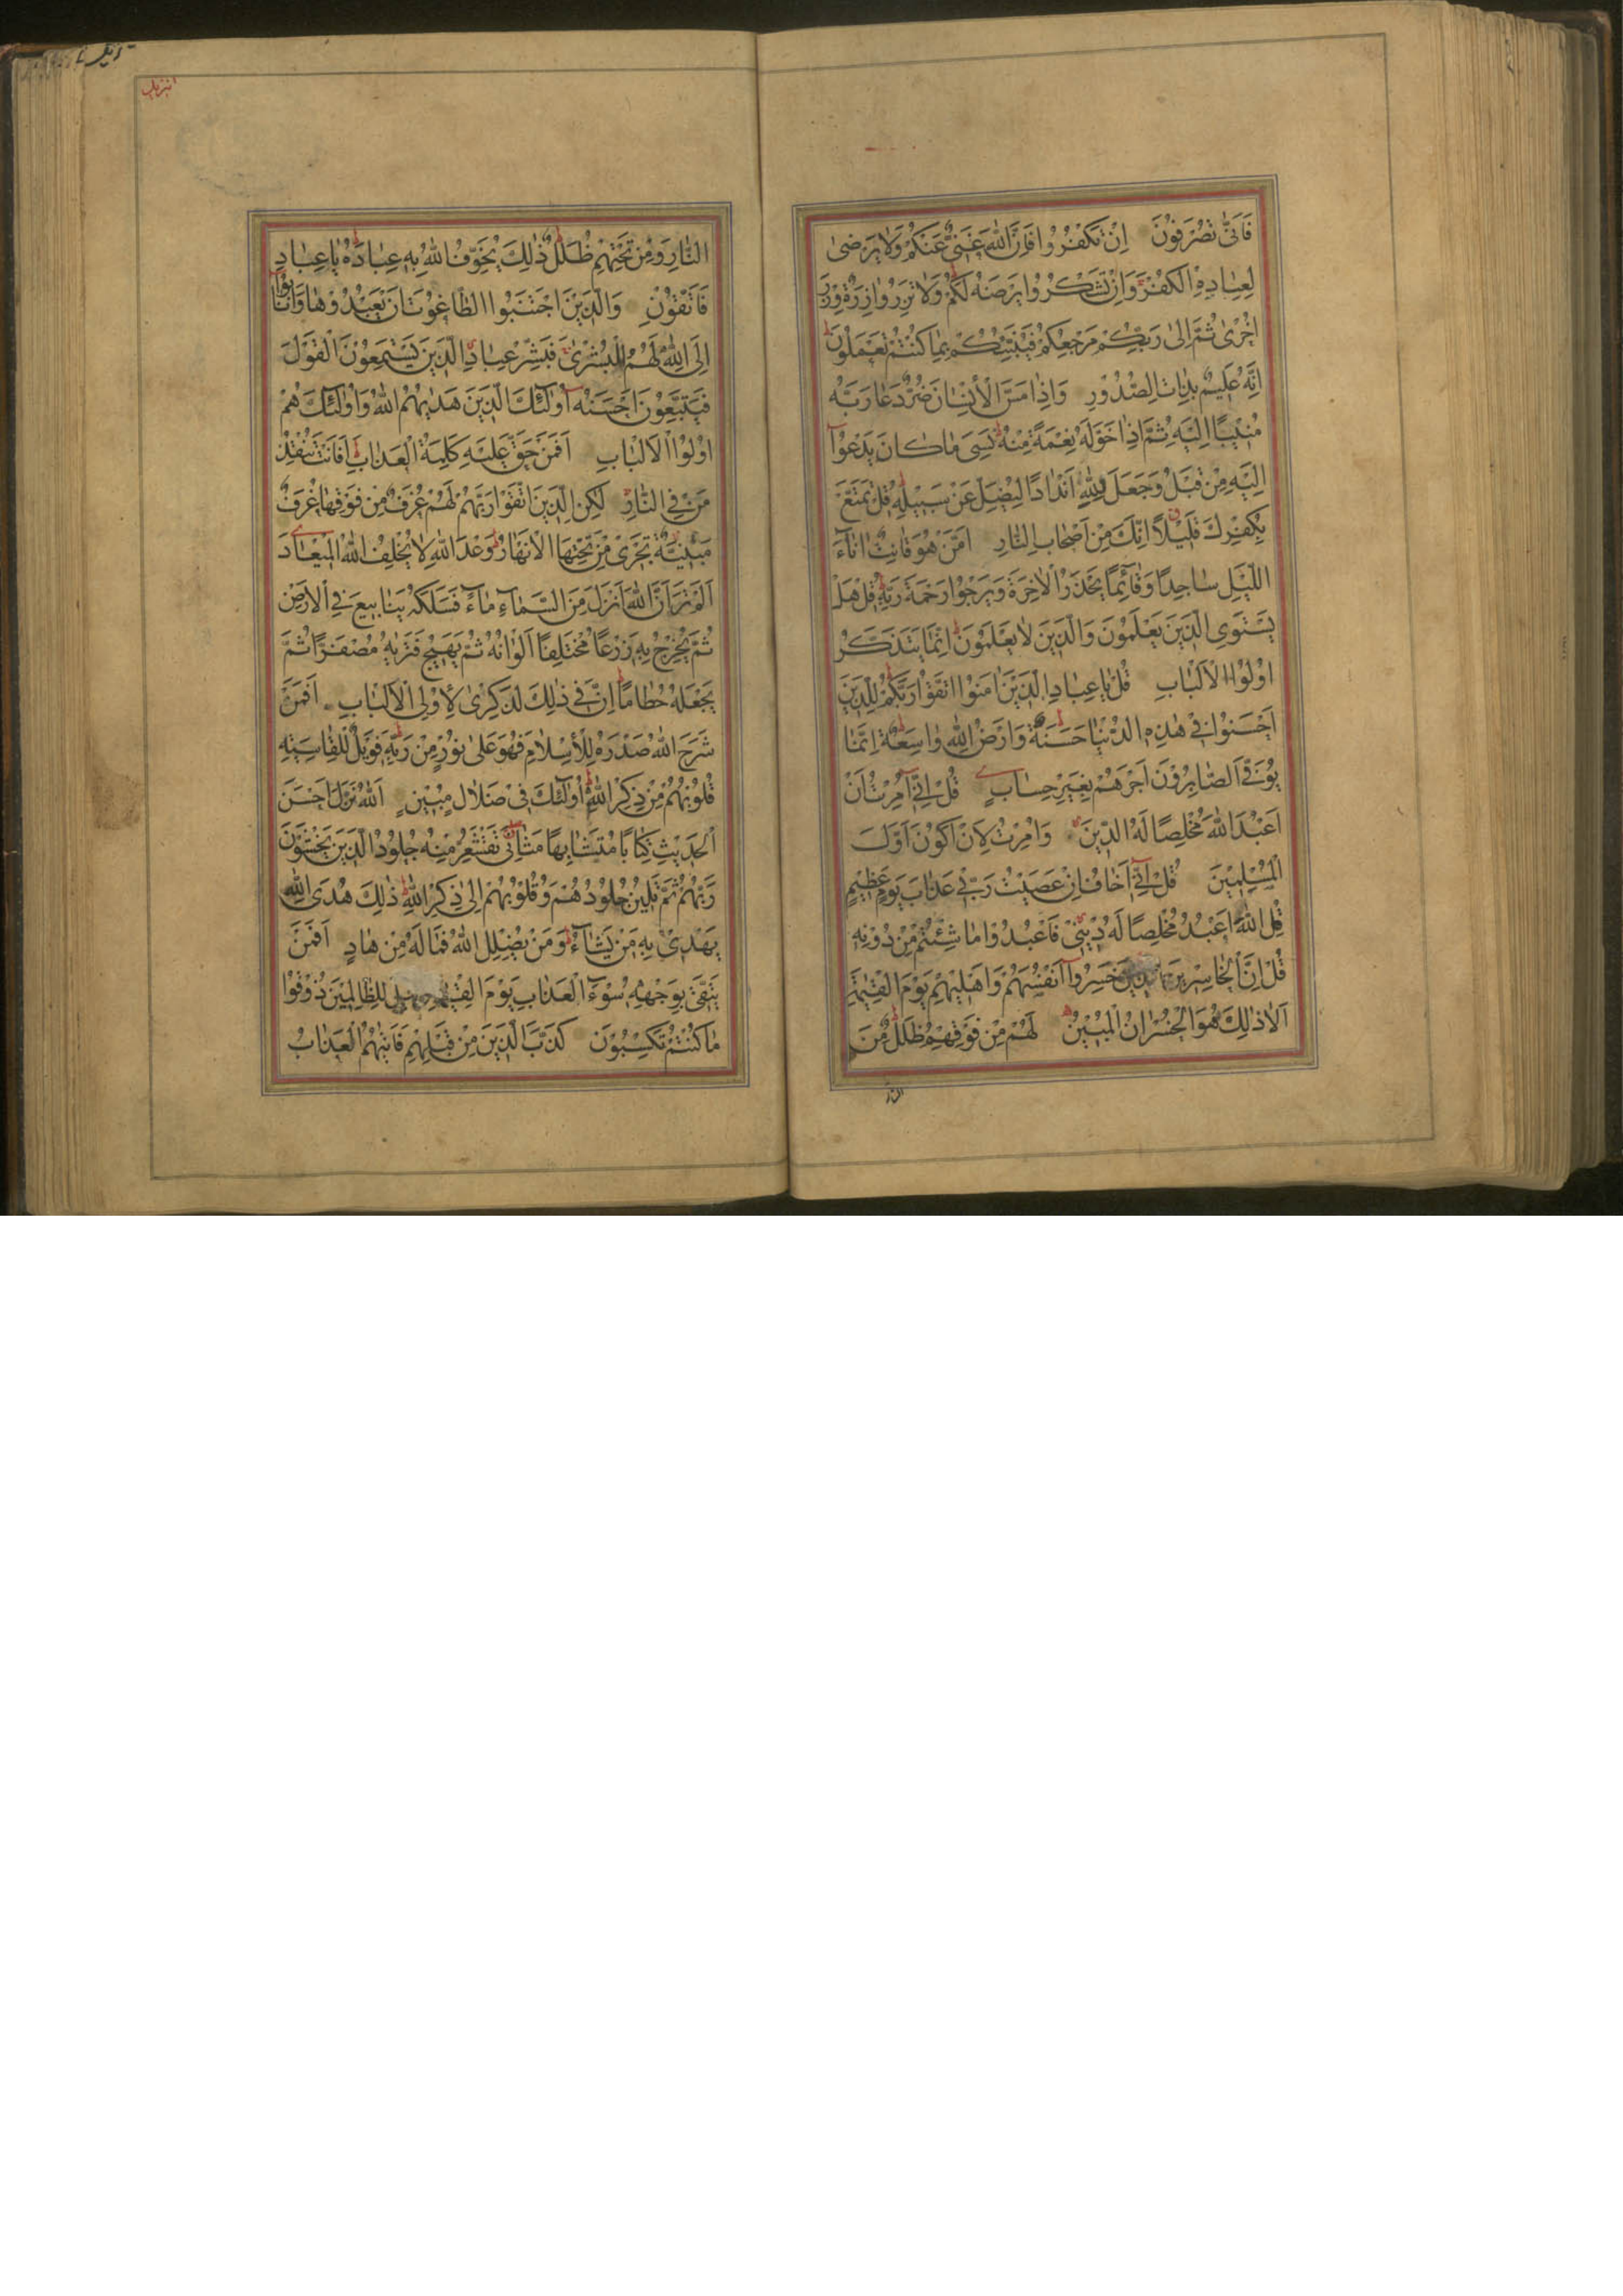 فَاَنّٰى تُصْرَفُونَ اِنْ تَكْفُرُوا فَاِنَّ اللّٰهَ غَنِيٌّ عَنْكُمْ وَلَا يَرْضٰى
لِعِبَادِهِ الْكُفْرَ وَاِنْ تَشْكُرُوا يَرْضَهُ لَكُمْ وَلَا تَزِرُ وَازِرَةٌ وِزْرَ
اُخْرٰى ثُمَّ اِلٰى رَبِّكُمْ مَرْجِعُكُمْ فَيُنَبِّئُكُمْ بِمَا كُنْتُمْ تَعْمَلُونَ
اِنَّهُ عَلِيمٌ بِذَاتِ الصُّدُورِ وَاِذَا مَسَّ الْاِنْسَانَ ضُرٌّ دَعَا رَبَّهُ
مُنِيبًا اِلَيْهِ ثُمَّ اِذَا خَوَّلَهُ نِعْمَةً مِنْهُ نَسِيَ مَا كَانَ يَدْعُوٓا
اِلَيْهِ مِنْ قَبْلُ وَجَعَلَ لِلّٰهِ اَنْدَادًا لِيُضِلَّ عَنْ سَبِيلِهِ قُلْ تَمَتَّعْ
بِكُفْرِكَ قَلِيلًا اِنَّكَ مِنْ اَصْحَابِ النَّارِ اَمَّنْ هُوَ قَانِتٌ اٰنَآءَ
اللَّيْلِ سَاجِدًا وَقَآئِمًا يَحْذَرُ الْاٰخِرَةَ وَيَرْجُوا رَحْمَةَ رَبِّهِ قُلْ هَلْ
يَسْتَوِى الَّذِينَ يَعْلَمُونَ وَالَّذِينَ لَا يَعْلَمُونَ اِنَّمَا يَتَذَكَّرُ
اُولُوا الْاَلْبَابِ قُلْ يَا عِبَادِ الَّذِينَ اٰمَنُوا اتَّقُوا رَبَّكُمْ لِلَّذِينَ
اَحْسَنُوا فِي هٰذِهِ الدُّنْيَا حَسَنَةٌ وَاَرْضُ اللّٰهِ وَاسِعَةٌ اِنَّمَا
يُوَفَّى الصَّابِرُونَ اَجْرَهُمْ بِغَيْرِ حِسَابٍ قُلْ اِنِّيٓ اُمِرْتُ اَنْ
اَعْبُدَ اللّٰهَ مُخْلِصًا لَهُ الدِّينَ وَاُمِرْتُ لِاَنْ اَكُونَ اَوَّلَ
الْمُسْلِمِينَ قُلْ اِنِّيٓ اَخَافُ اِنْ عَصَيْتُ رَبِّي عَذَابَ يَوْمٍ عَظِيمٍ
قُلِ اللّٰهَ اَعْبُدُ مُخْلِصًا لَهُ دِينِي فَاعْبُدُوا مَا شِئْتُمْ مِنْ دُونِهِ
قُلْ اِنَّ الْخَاسِرِينَ الَّذِينَ خَسِرُوٓا اَنْفُسَهُمْ وَاَهْلِيهِمْ يَوْمَ الْقِيٰمَةِ
اَلَا ذٰلِكَ هُوَ الْخُسْرَانُ الْمُبِينُ لَهُمْ مِنْ فَوْقِهِمْ ظُلَلٌ مِنَ
النار
النَّارِ وَمِنْ تَحْتِهِمْ ظُلَلٌ ذٰلِكَ يُخَوِّفُ اللّٰهُ بِهِ عِبَادَهُ يَا عِبَادِ
فَاتَّقُونِ وَالَّذِينَ اجْتَنَبُوا الطَّاغُوتَ اَنْ يَعْبُدُوهَا وَاَنَابُوٓا
اِلَى اللّٰهِ لَهُمُ الْبُشْرٰى فَبَشِّرْ عِبَادِ الَّذِينَ يَسْتَمِعُونَ الْقَوْلَ
فَيَتَّبِعُونَ اَحْسَنَهُ اُولٰٓئِكَ الَّذِينَ هَدٰيهُمُ اللّٰهُ وَاُولٰٓئِكَ هُمْ
اُولُوا الْاَلْبَابِ اَفَمَنْ حَقَّ عَلَيْهِ كَلِمَةُ الْعَذَابِ اَفَاَنْتَ تُنْقِذُ
مَنْ فِي النَّارِ لٰكِنِ الَّذِينَ اتَّقَوْا رَبَّهُمْ لَهُمْ غُرَفٌ مِنْ فَوْقِهَا غُرَفٌ
مَبْنِيَّةٌ تَجْرِى مِنْ تَحْتِهَا الْاَنْهَارُ وَعْدَ اللّٰهِ لَا يُخْلِفُ اللّٰهُ الْمِيعَادَ
اَلَمْ تَرَ اَنَّ اللّٰهَ اَنْزَلَ مِنَ السَّمَآءِ مَآءً فَسَلَكَهُ يَنَابِيعَ فِي الْاَرْضِ
ثُمَّ يُخْرِجُ بِهِ زَرْعًا مُخْتَلِفًا اَلْوَانُهُ ثُمَّ يَهِيجُ فَتَرٰيهُ مُصْفَرًّا ثُمَّ
يَجْعَلُهُ حُطَامًا اِنَّ فِي ذٰلِكَ لَذِكْرٰى لِاُولِي الْاَلْبَابِ اَفَمَنْ
شَرَحَ اللّٰهُ صَدْرَهُ لِلْاِسْلَامِ فَهُوَ عَلٰى نُورٍ مِنْ رَبِّهِ فَوَيْلٌ لِلْقَاسِيَةِ
قُلُوبُهُمْ مِنْ ذِكْرِ اللّٰهِ اُولٰٓئِكَ فِي ضَلَالٍ مُبِينٍ اَللّٰهُ نَزَّلَ اَحْسَنَ
الْحَدِيثِ كِتَابًا مُتَشَابِهًا مَثَانِيَ تَقْشَعِرُّ مِنْهُ جُلُودُ الَّذِينَ يَخْشَوْنَ
رَبَّهُمْ ثُمَّ تَلِينُ جُلُودُهُمْ وَقُلُوبُهُمْ اِلٰى ذِكْرِ اللّٰهِ ذٰلِكَ هُدَى اللّٰهِ
يَهْدِى بِهِ مَنْ يَشَآءُ وَمَنْ يُضْلِلِ اللّٰهُ فَمَا لَهُ مِنْ هَادٍ اَفَمَنْ
يَتَّقِي بِوَجْهِهِ سُوٓءَ الْعَذَابِ يَوْمَ الْقِيٰمَةِ وَقِيلَ لِلظَّالِمِينَ ذُوقُوا
مَا كُنْتُمْ تَكْسِبُونَ كَذَّبَ الَّذِينَ مِنْ قَبْلِهِمْ فَاَتٰيهُمُ الْعَذَابُ